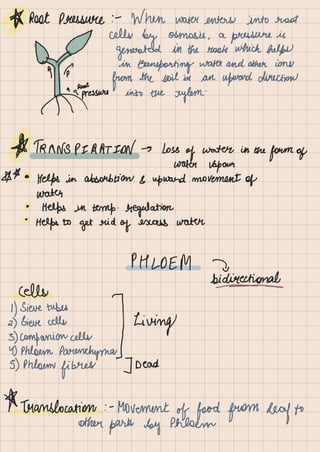 Root Pressure :- When water enters into root
cells by osmosis, a pressure is
generated in the roots which helps
in transporting water and other ions
from the soil in an upward direction
into the xylem.
P
P
Root
pressure
TRANSPIRATION → Loss of water in the form of
water vapour
• Helps in absorbtion & upward movement of
water
• Helps in temp. regulation
• Helps to get rid of excess water
PHLOEM
bidirectional
Cells
1) Sieve tubes
2) Sieve cells
3) Companion cells
4) Phloem Parenchyma
Living
5) Phloem fibres
Dead
Translocation :- Movement of food from leaf to
other parts by Phloem